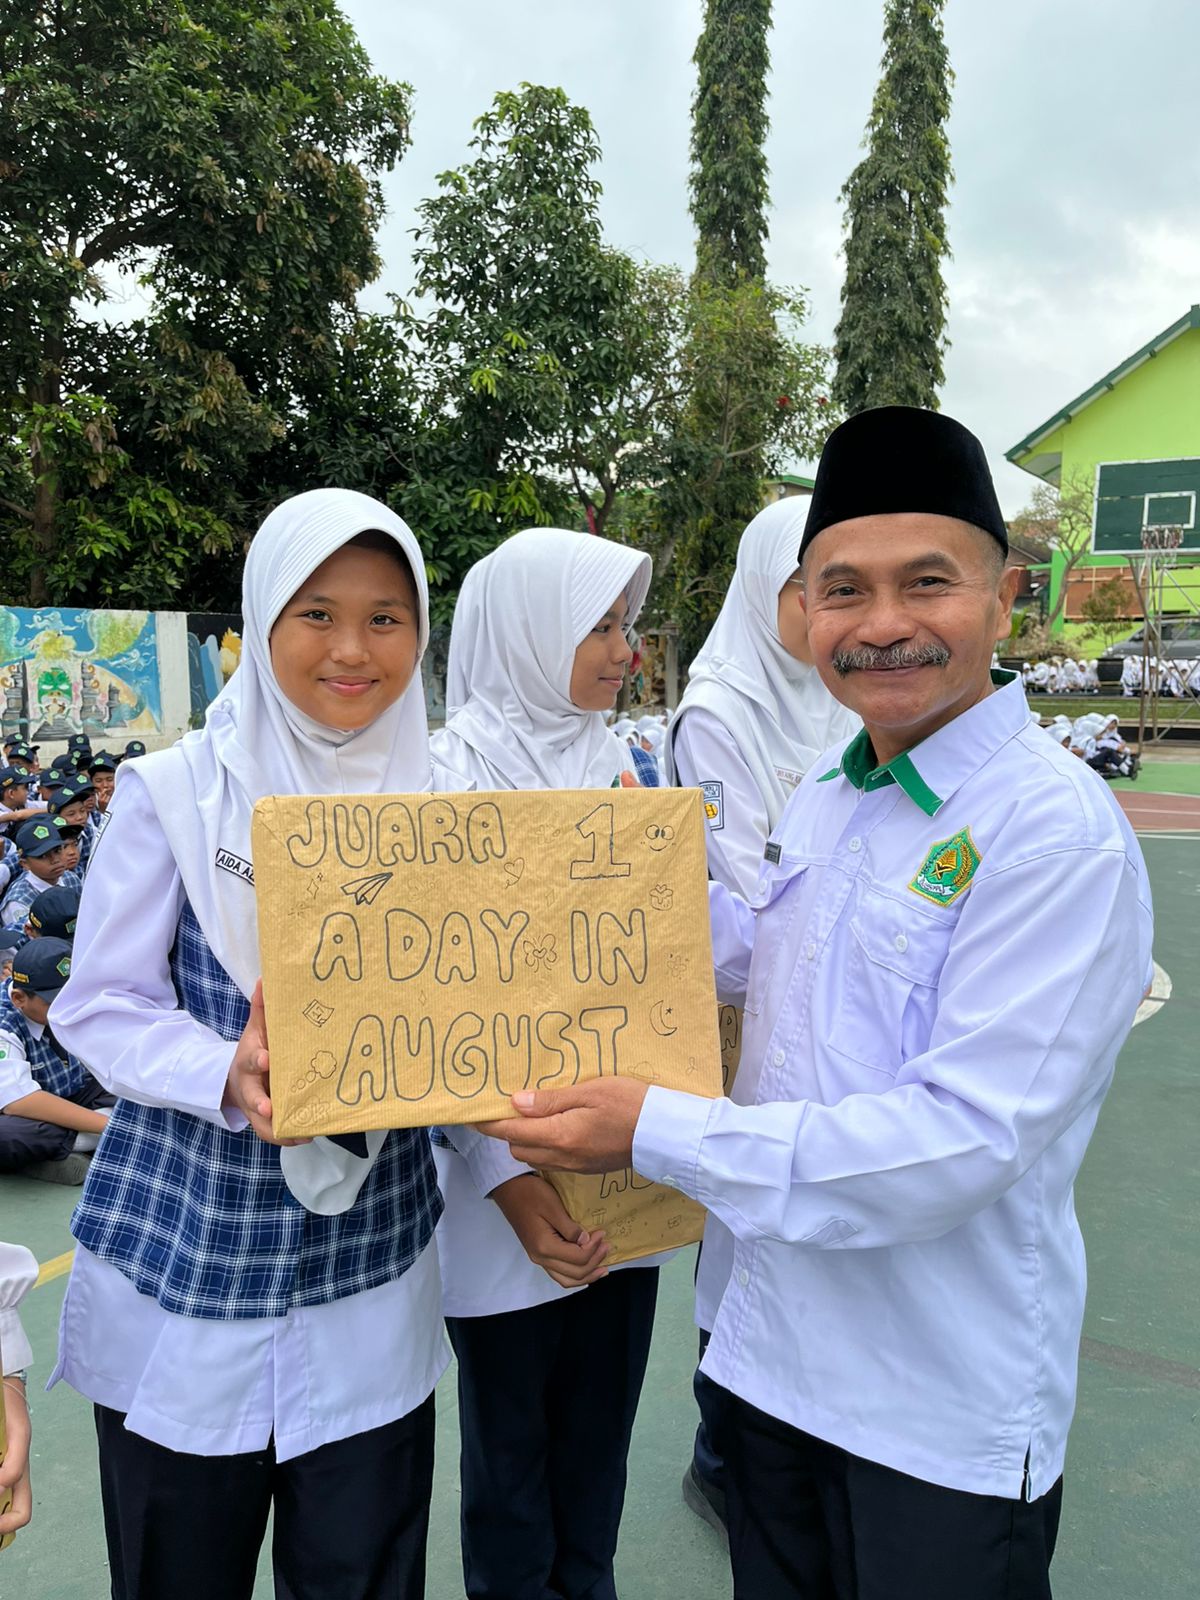 JUARA 1
A DAY IN
AUGUST
AIDA AZ